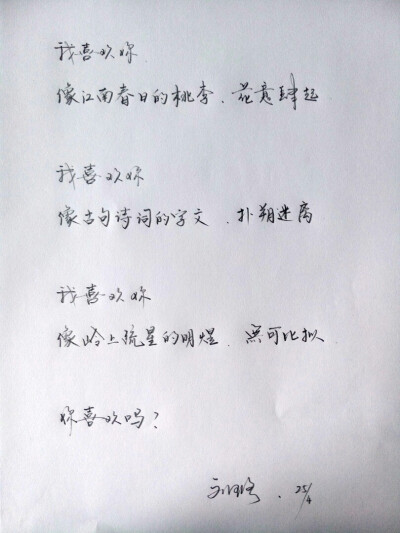 我喜欢妳
像江南春日的桃李、花意肆起
我喜欢妳
像古句诗词的字文、扑朔迷离
我喜欢妳
像岭上疏星的明煜、无可比拟
妳喜欢吗?
25/4